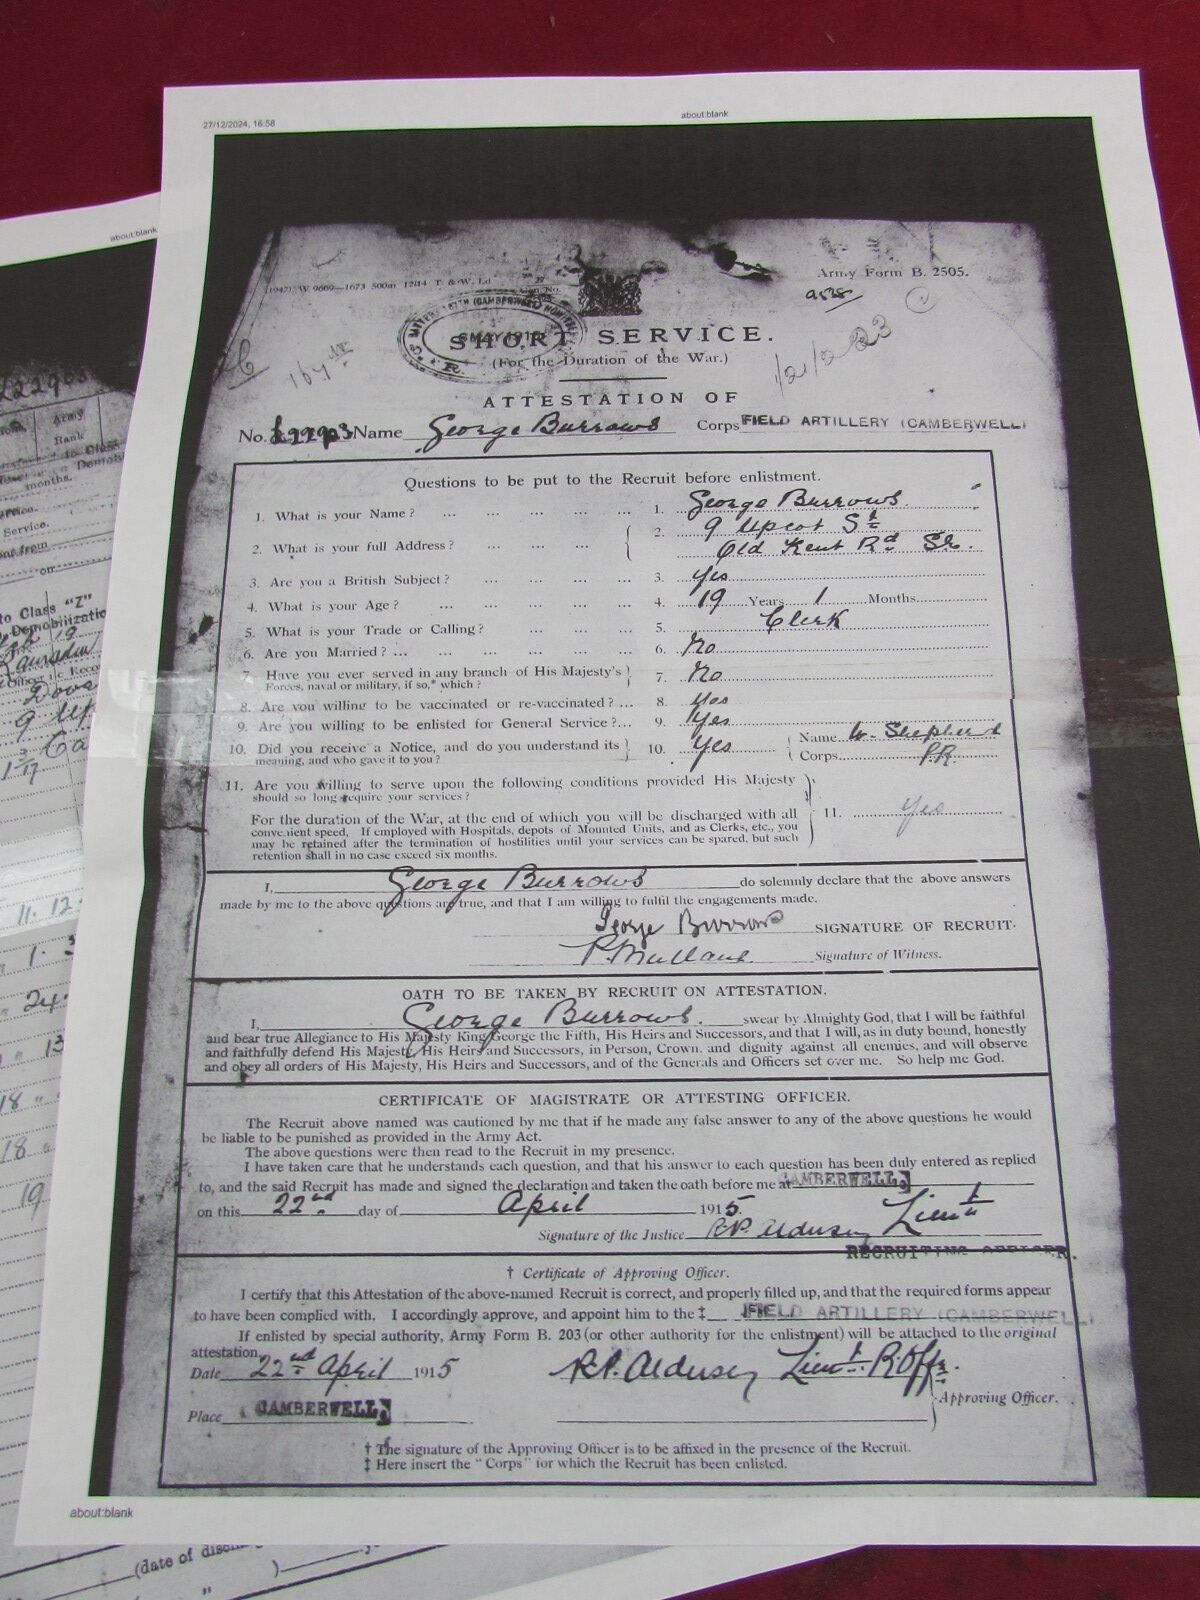 27/12/2024, 16:58
about:blank
Army Form B. 2505.
W 9669—1673 500m 12/14 T. & W. Ld
SHORT SERVICE.
(For the Duration of the War.)
ATTESTATION OF
No. Name George Burrows Corps FIELD ARTILLERY (CAMBERWELL)
Questions to be put to the Recruit before enlistment.
1. What is your Name? ... ... ... ... 1. George Burrows.
2. What is your full Address? ... ... ... 2. 9 Upcot St
Old Kent Rd Se.
3. Are you a British Subject? ... ... ... 3. Yes
4. What is your Age? ... ... ... ... 4. 19 Years 1 Months
5. What is your Trade or Calling? ... ... ... 5. Clerk
6. Are you Married? ... ... ... ... ... 6. No
7. Have you ever served in any branch of His Majesty's 7. No
Forces, naval or military, if so,* which?
8. Are you willing to be vaccinated or re-vaccinated? ... 8. Yes
9. Are you willing to be enlisted for General Service? ... 9. Yes
10. Did you receive a Notice, and do you understand its 10. Yes Name W. Shepherd
meaning, and who gave it to you? Corps
11. Are you willing to serve upon the following conditions provided His Majesty
should so long require your services?
For the duration of the War, at the end of which you will be discharged with all 11. Yes
convenient speed. If employed with Hospitals, depots of Mounted Units, and as Clerks, etc., you
may be retained after the termination of hostilities until your services can be spared, but such
retention shall in no case exceed six months.
I, George Burrows do solemnly declare that the above answers
made by me to the above questions are true, and that I am willing to fulfil the engagements made.
George Burrows SIGNATURE OF RECRUIT.
Signature of Witness.
OATH TO BE TAKEN BY RECRUIT ON ATTESTATION.
I, George Burrows. swear by Almighty God, that I will be faithful
and bear true Allegiance to His Majesty King George the Fifth, His Heirs and Successors, and that I will, as in duty bound, honestly
and faithfully defend His Majesty, His Heirs and Successors, in Person, Crown, and dignity against all enemies, and will observe
and obey all orders of His Majesty, His Heirs and Successors, and of the Generals and Officers set over me. So help me God.
CERTIFICATE OF MAGISTRATE OR ATTESTING OFFICER.
The Recruit above named was cautioned by me that if he made any false answer to any of the above questions he would
be liable to be punished as provided in the Army Act.
The above questions were then read to the Recruit in my presence.
I have taken care that he understands each question, and that his answer to each question has been duly entered as replied
to, and the said Recruit has made and signed the declaration and taken the oath before me at CAMBERWELL.
on this 22nd day of April 1915.
Signature of the Justice R.P. Aldersey Lieut
RECRUITING OFFICER.
† Certificate of Approving Officer.
I certify that this Attestation of the above-named Recruit is correct, and properly filled up, and that the required forms appear
to have been complied with. I accordingly approve, and appoint him to the ‡ FIELD ARTILLERY (CAMBERWELL)
If enlisted by special authority, Army Form B. 203 (or other authority for the enlistment) will be attached to the original
attestation.
Date 22nd April 1915 R.P. Aldersey Lieut. R. Offr.
Approving Officer.
Place CAMBERWELL.
† The signature of the Approving Officer is to be affixed in the presence of the Recruit.
‡ Here insert the "Corps" for which the Recruit has been enlisted.
about:blank
about:blank
Army
Rank
months.
Service.
on
to Class "Z"
Demobilizatio
9 Up
11. 12
24
13
18 "
18
19
(date of